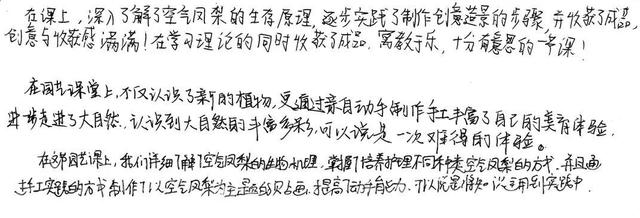 在课上，深入了解了空气凤梨的生存原理，逐步实践了制作创意造景的步骤，并收获了成品，
创意与收获感满满！在学习理论的同时收获了成品，寓教于乐，十分有意思的一节课！
在园艺课堂上，不仅认识了新的植物，更通过亲自动手制作手工丰富了自己的美育体验，
进一步走进了大自然，认识到大自然的丰富多彩，可以说是一次难得的体验。
在这节园艺课上，我们详细了解了空气凤梨的生物机理，掌握了培养护理不同种类空气凤梨的方式，并且通
过手工实践的方式制作了以空气凤梨为主题的贝壳画，提高了动手能力，可以说是将知识运用到实践中．